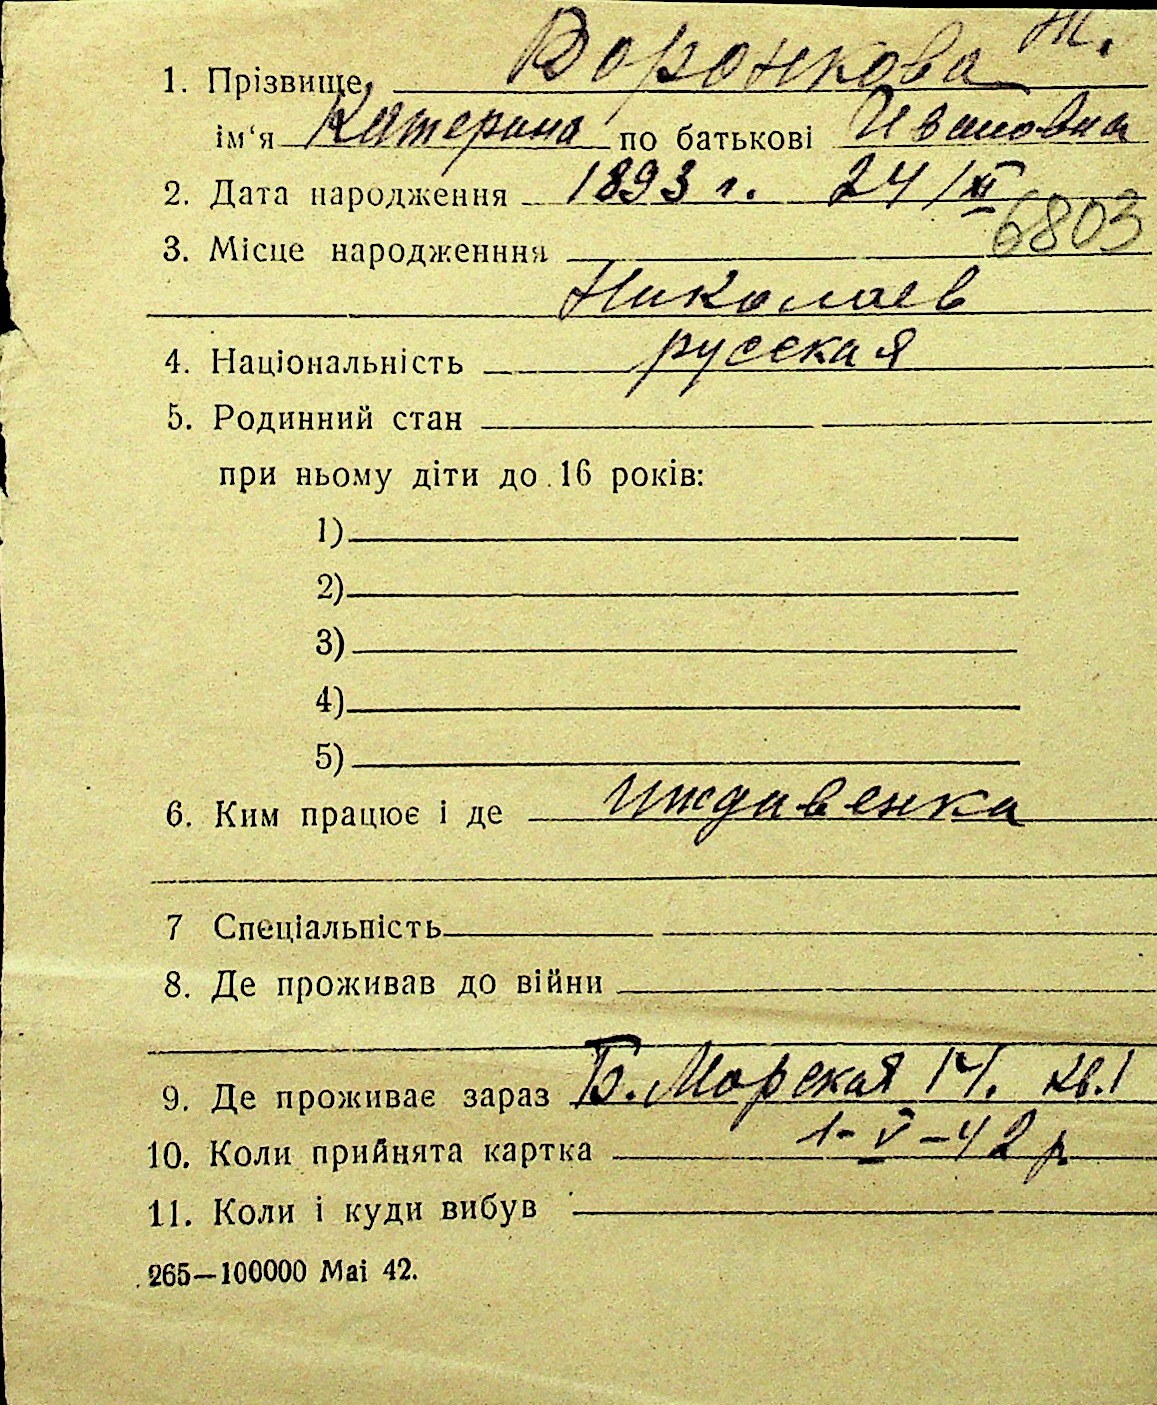 Ж.
1. Прізвище Воронкова
ім‘я Катерина по батькові Ивановна
2. Дата народження 1893 г. 24/XI
6803
3. Місце народженння
Николаев
4. Національність русская
5. Родинний стан
при ньому діти до 16 років:
1)
2)
3)
4)
5)
6. Ким працює і де иждивенка
7 Спеціальність
8. Де проживав до війни
9. Де проживає зараз Б. Морская 14. кв. 1
10. Коли прийнята картка 1-V-42 р
11. Коли і куди вибув
265—100000 Mai 42.